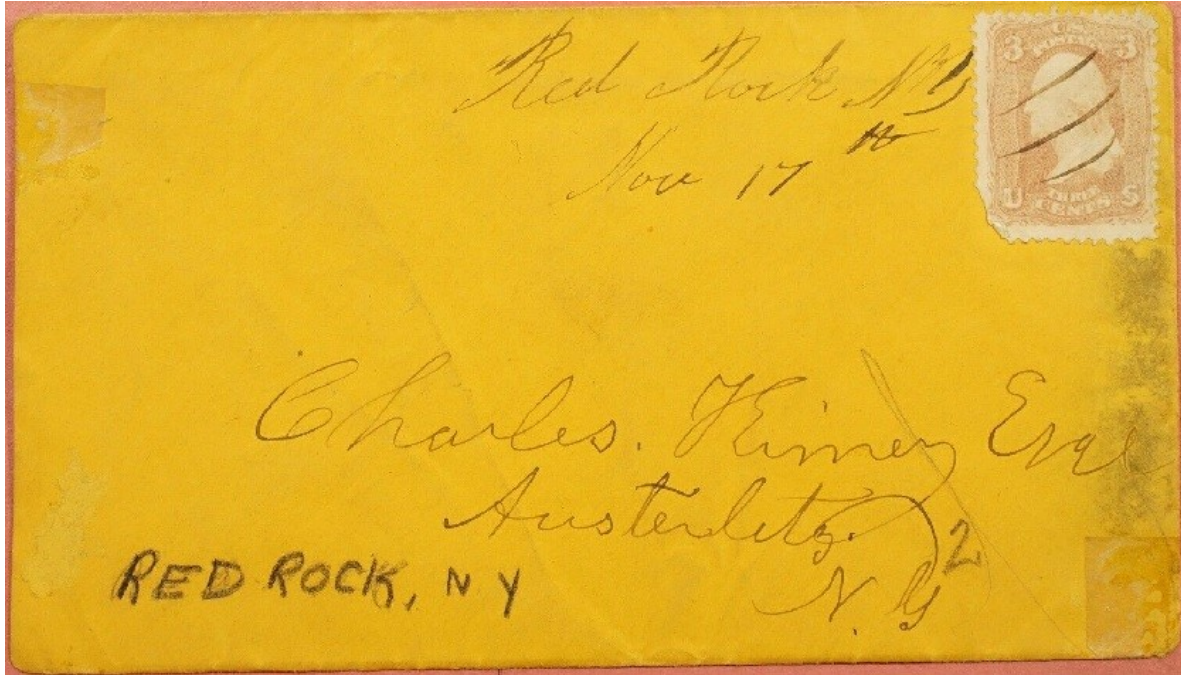 Red Rock NY
Nov 17 th
3 3
U THREE S
CENTS
Charles. Kinney Esqe
Austerlitz.
2
N. Y
RED ROCK, NY